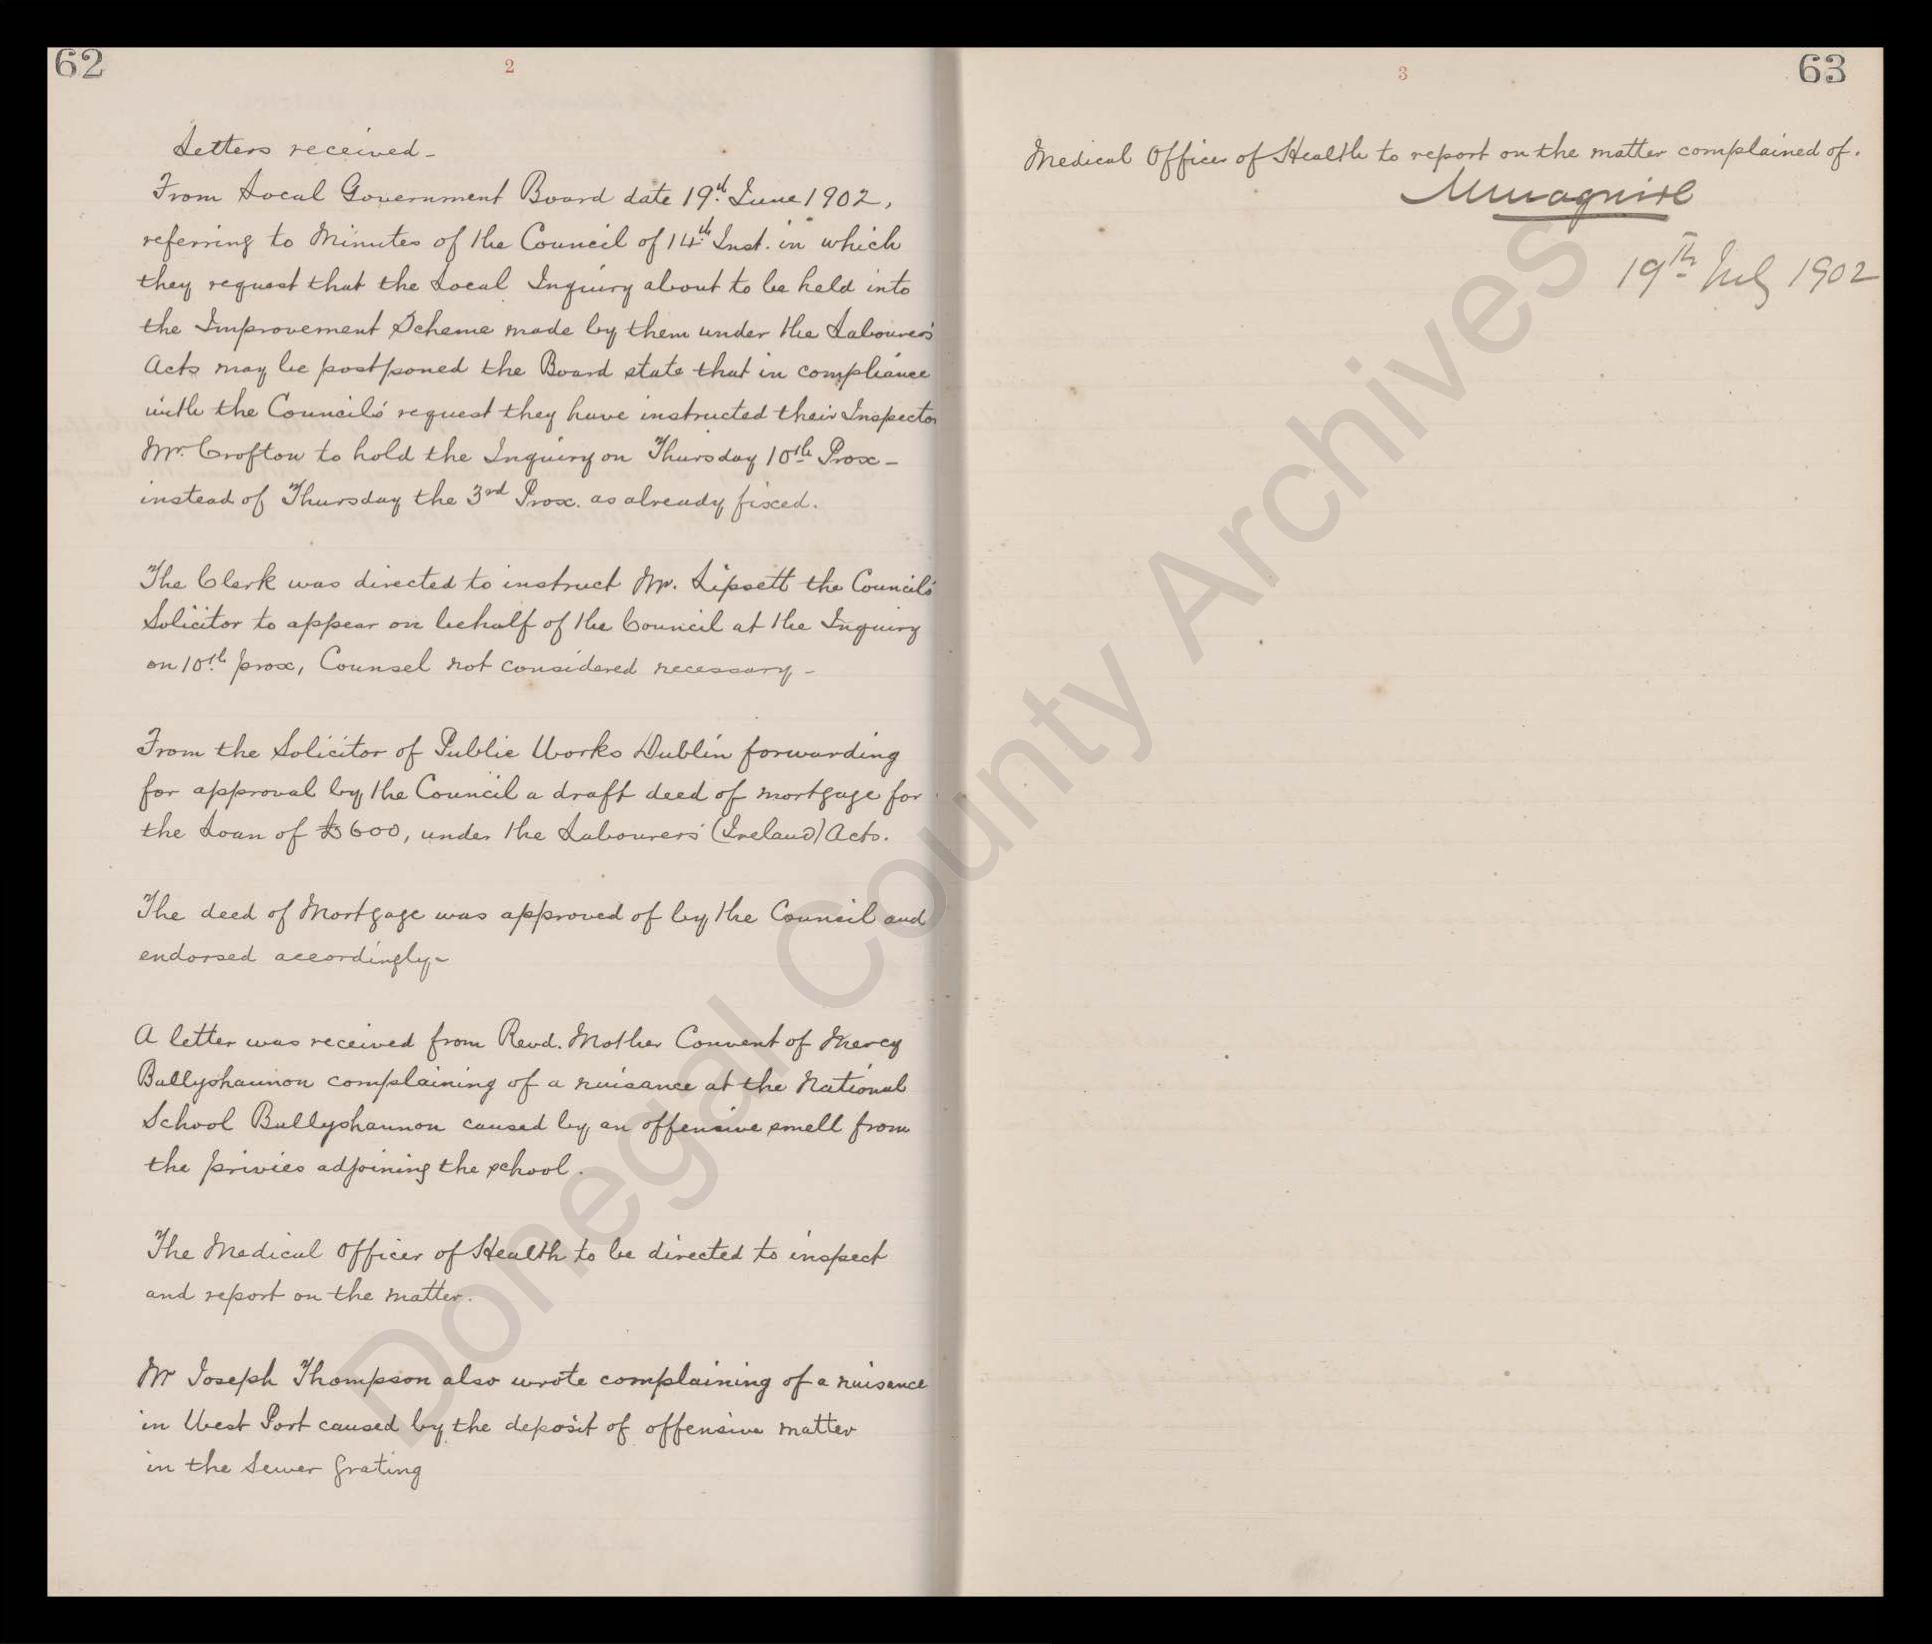 62
2
Letters received -
From Local Government Board date 19th June 1902,
referring to Minutes of the Council of 14th Inst. in which
they request that the Local Inquiry about to be held into
the Improvement Scheme made by them under the Labourers'
Acts may be postponed the Board state that in compliance
with the Council's request they have instructed their Inspector
Mr. Crofton to hold the Inquiry on Thursday 10th Prox -
instead of Thursday the 3rd Prox. as already fixed.
The Clerk was directed to instruct Mr. Lipsett the Council's
Solicitor to appear on behalf of the Council at the Inquiry
on 10th prox, Counsel not considered necessary -
From the Solicitor of Public Works Dublin forwarding
for approval by the Council a draft deed of mortgage for
the Loan of £600, under the Labourers' (Ireland) Acts.
The deed of Mortgage was approved of by the Council and
endorsed accordingly -
A letter was received from Revd. Mother Convent of Mercy
Ballyshannon complaining of a nuisance at the National
School Ballyshannon caused by an offensive smell from
the privies adjoining the school.
The Medical Officer of Health to be directed to inspect
and report on the matter.
Mr Joseph Thompson also wrote complaining of a nuisance
in West Port caused by the deposit of offensive matter
in the Sewer grating
63
3
Medical Officer of Health to report on the matter complained of.
19th July 1902
Donegal County Archives